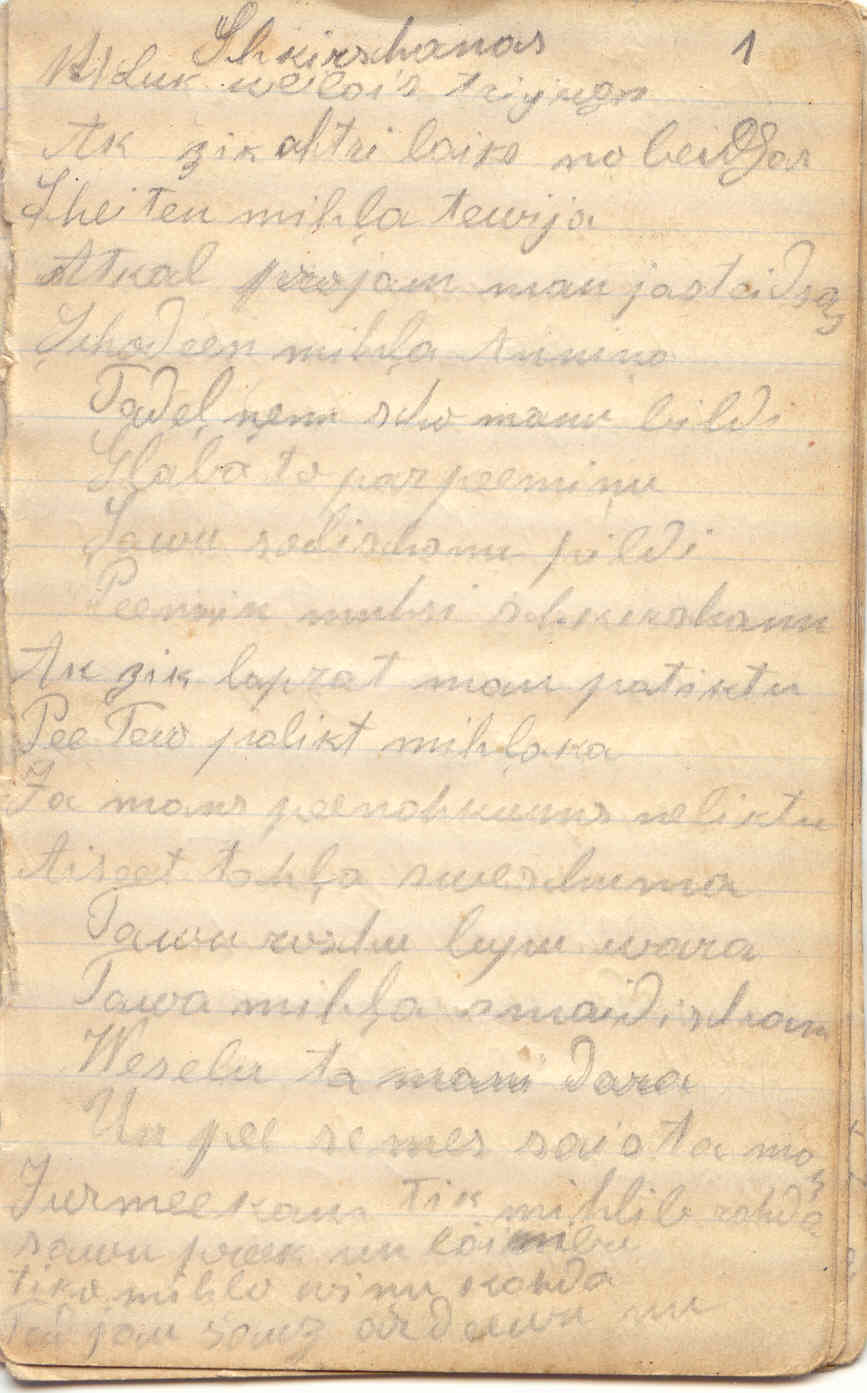 Shkirschanas 1
weläis
Ak zik ahtri laiks nobeidsas
Shei Teu mihļa tewija
Atkal projam man jasteidsas
Schodeen mihļa
Tadeļ ņem scho manu bildi
Glaba to par peeminu
Sawu solischanu pildi
Peemin muhsu schkirschanu
Ak zik labprat man patiktu
Pee Tew palikt mihļaka
Ja mans peenahkums neliktu
Aiseet tahļa sweschuma
Tawu roschu lupu wara
Tawa mihļa smaidischana
Weselu ta mani dara
Un pee semes saista ma
Jurmeekam Tik mihlib rahda
sawu preek un laimibu
tiko mihlo winu rahda
Tad jau sauz ardeewu un